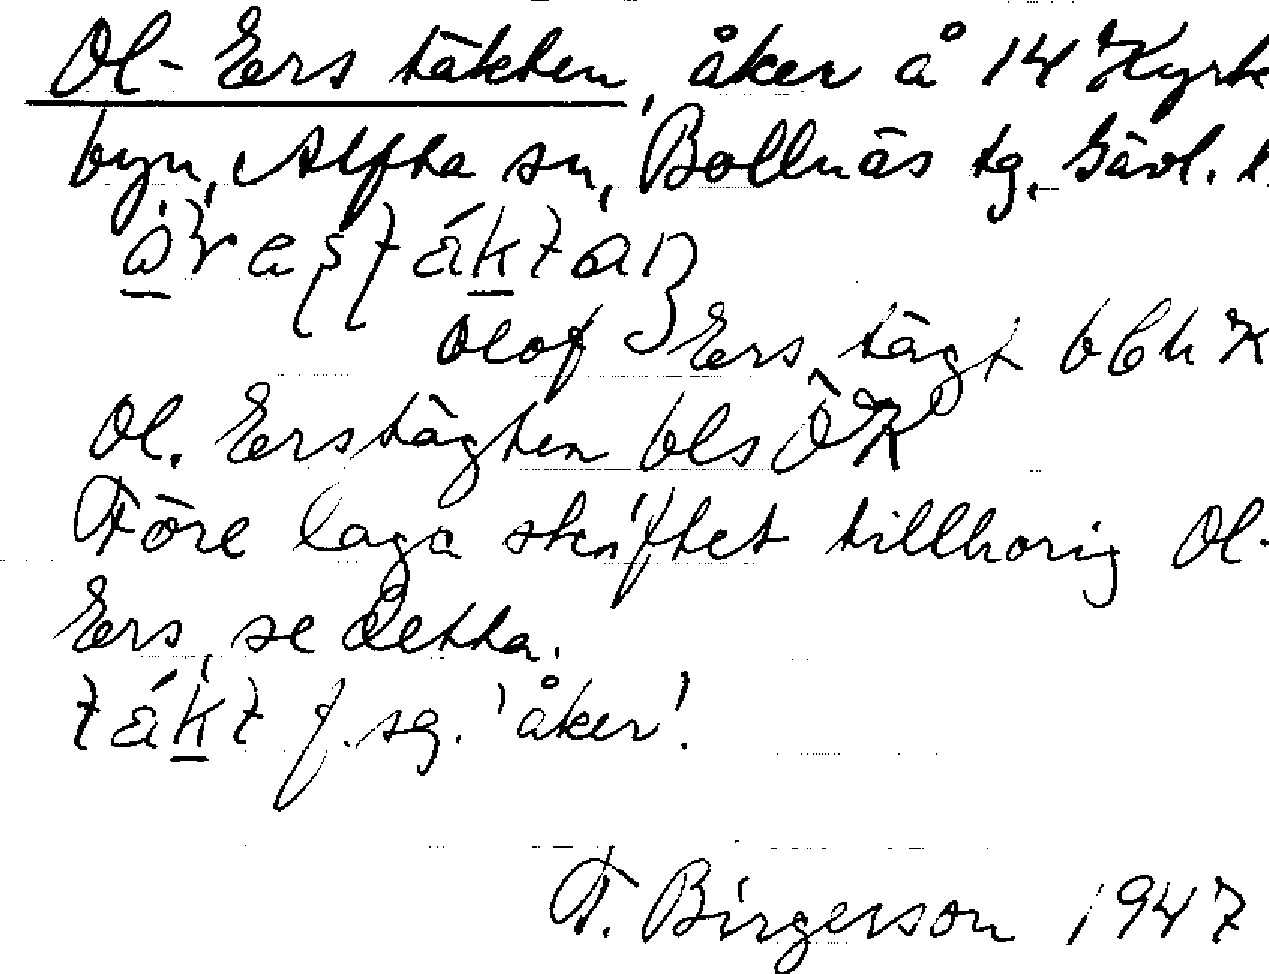 Ol-Ers täkten, åker å 14 Kyrk
byn, Alfta sn, Bollnäs tg, Gävl. l.
Olof Ers tägt bbh K
Ol. Erstägten bls ÖK
Före laga skiftet tillhörig Ol-
Ers, se detta.
tákt f. sg. 'åker'.
F. Birgerson 1947